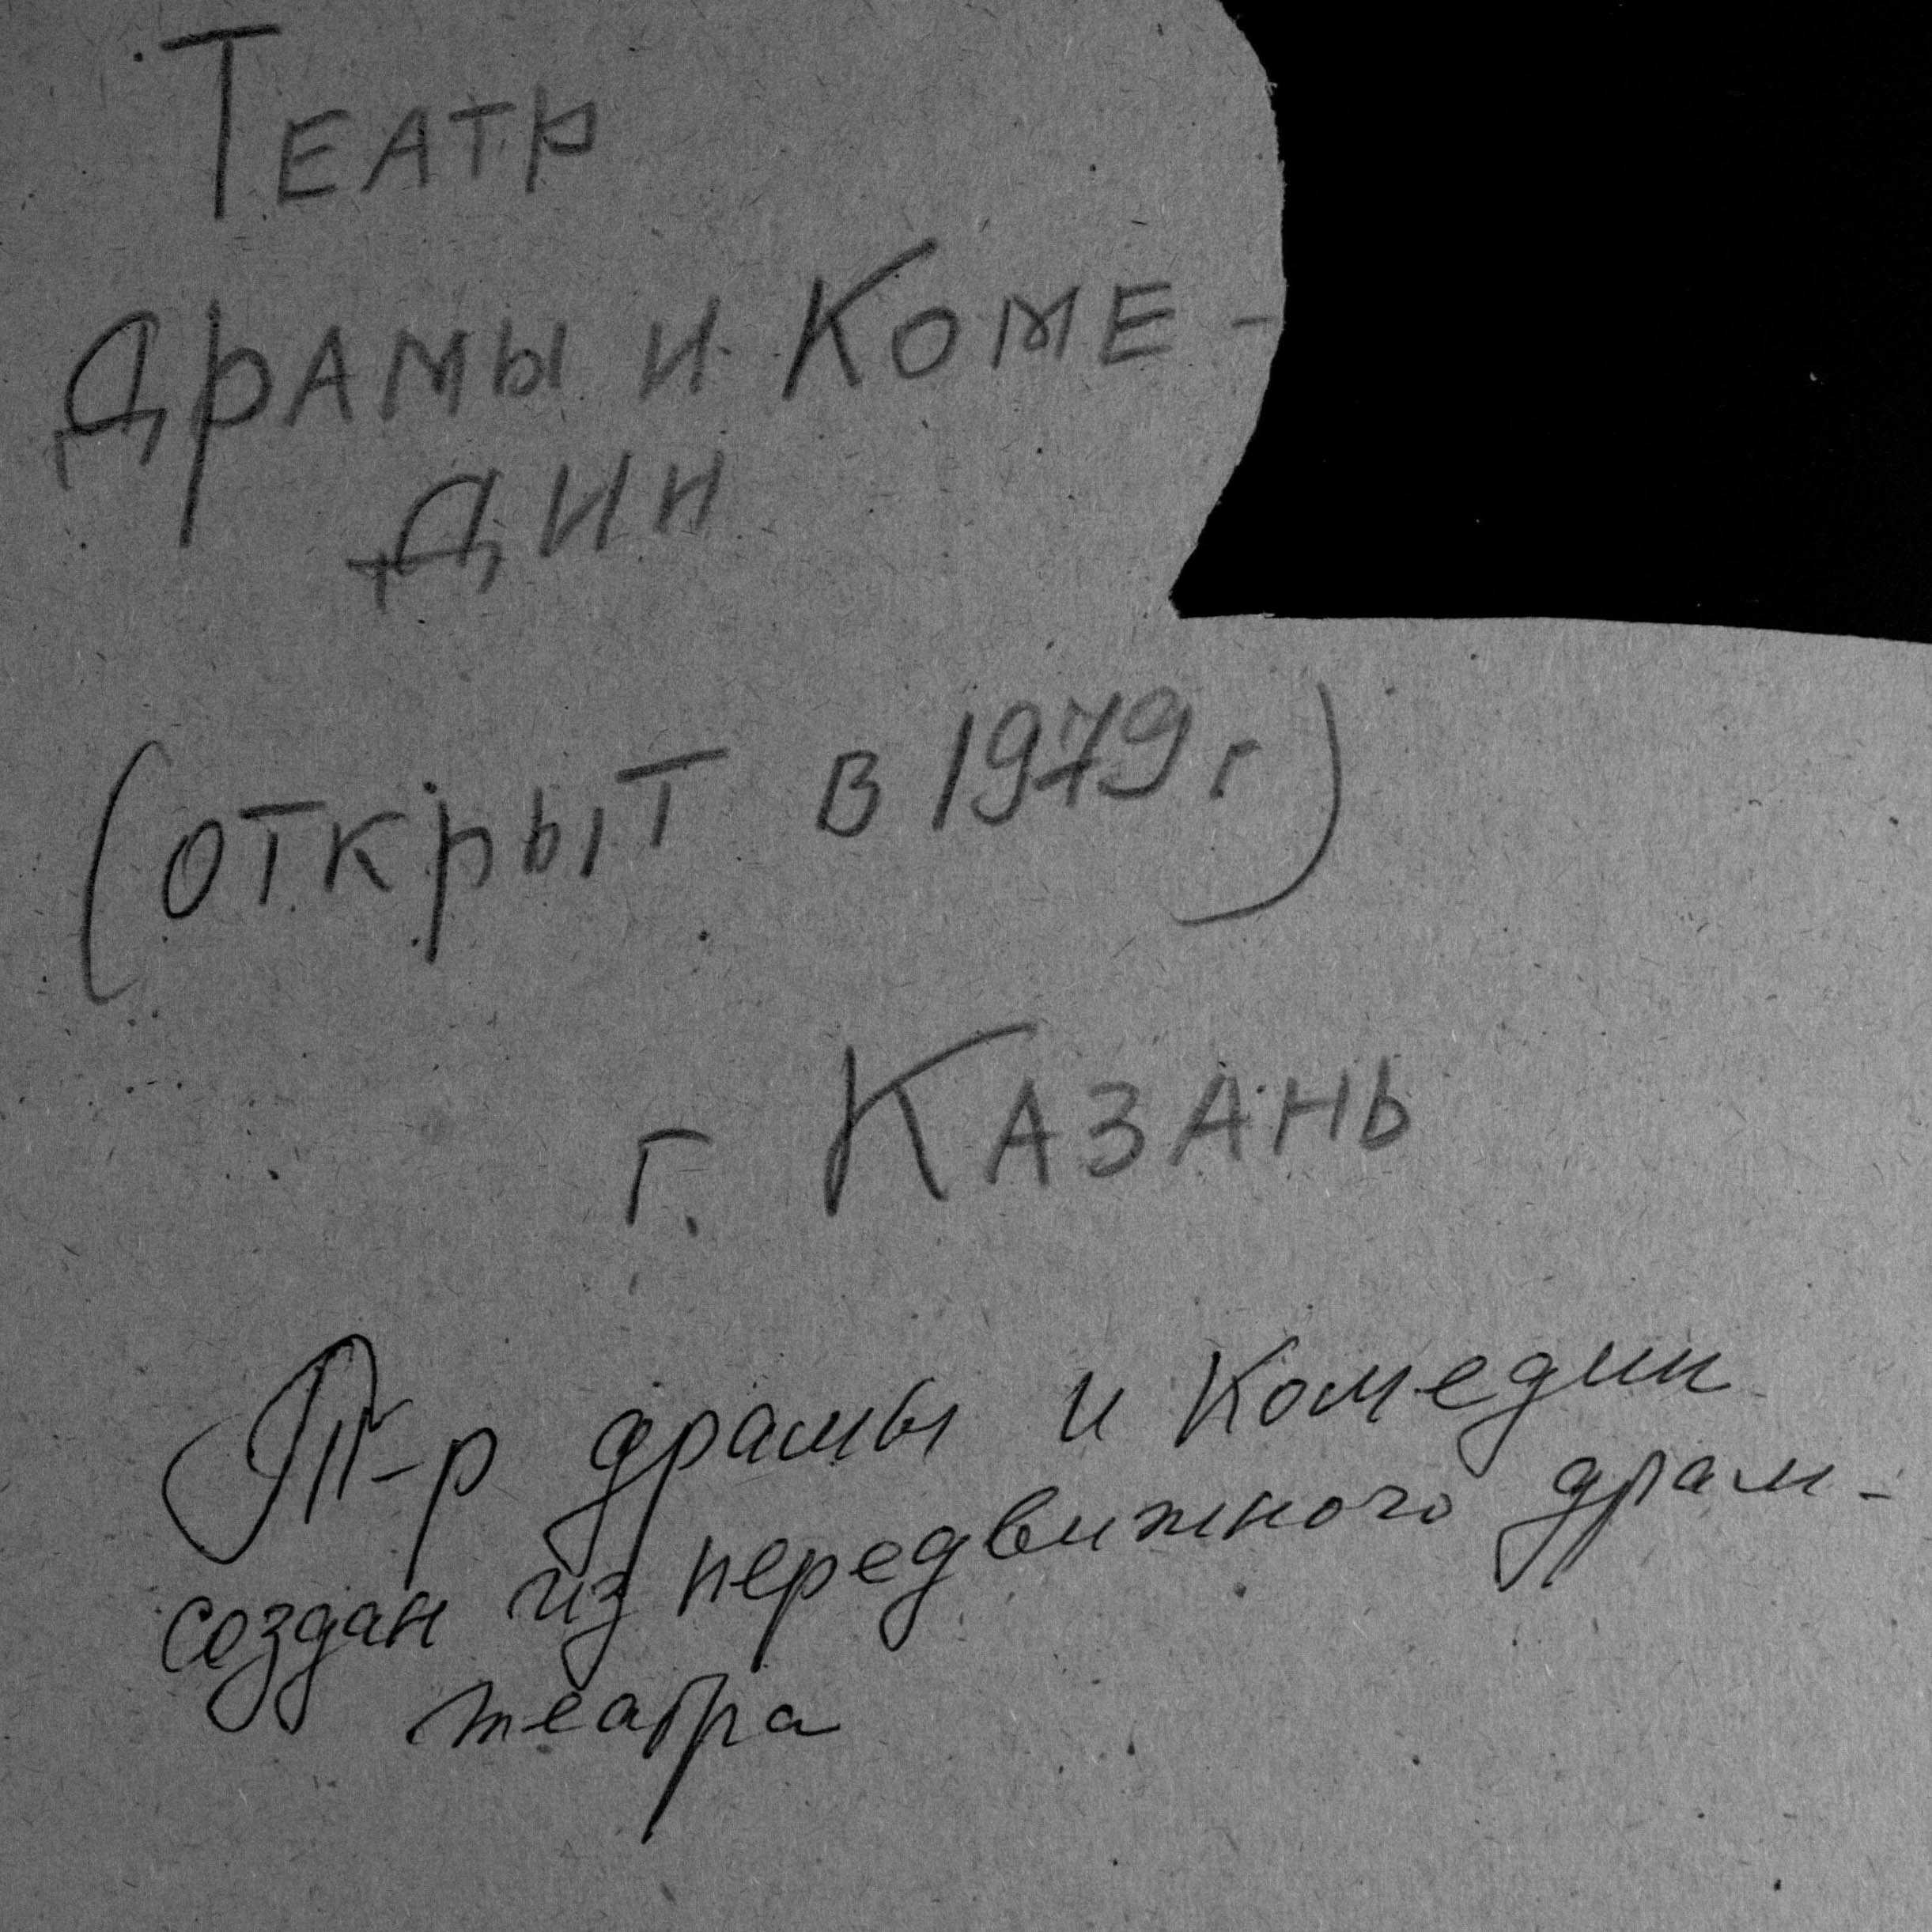 Театр
Драмы и Коме-
дии
(открыт в 1979 г)
г. Казань
Т-р драмы и комедии
создан из передвижного драм-
театра